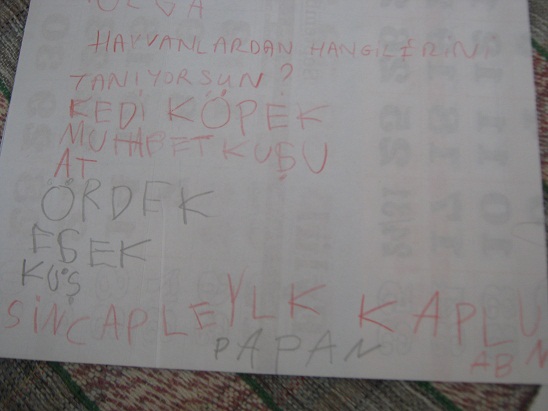 OLGA
HAYVANLARDAN HANGİLERİNİ
TANIYORSUN?
KEDİ KÖPEK
MUHABET KUŞU
AT
ÖRDEK
EŞEK
KUŞ
SİNCAP LEYLK KAPLU
PAPAN AB N